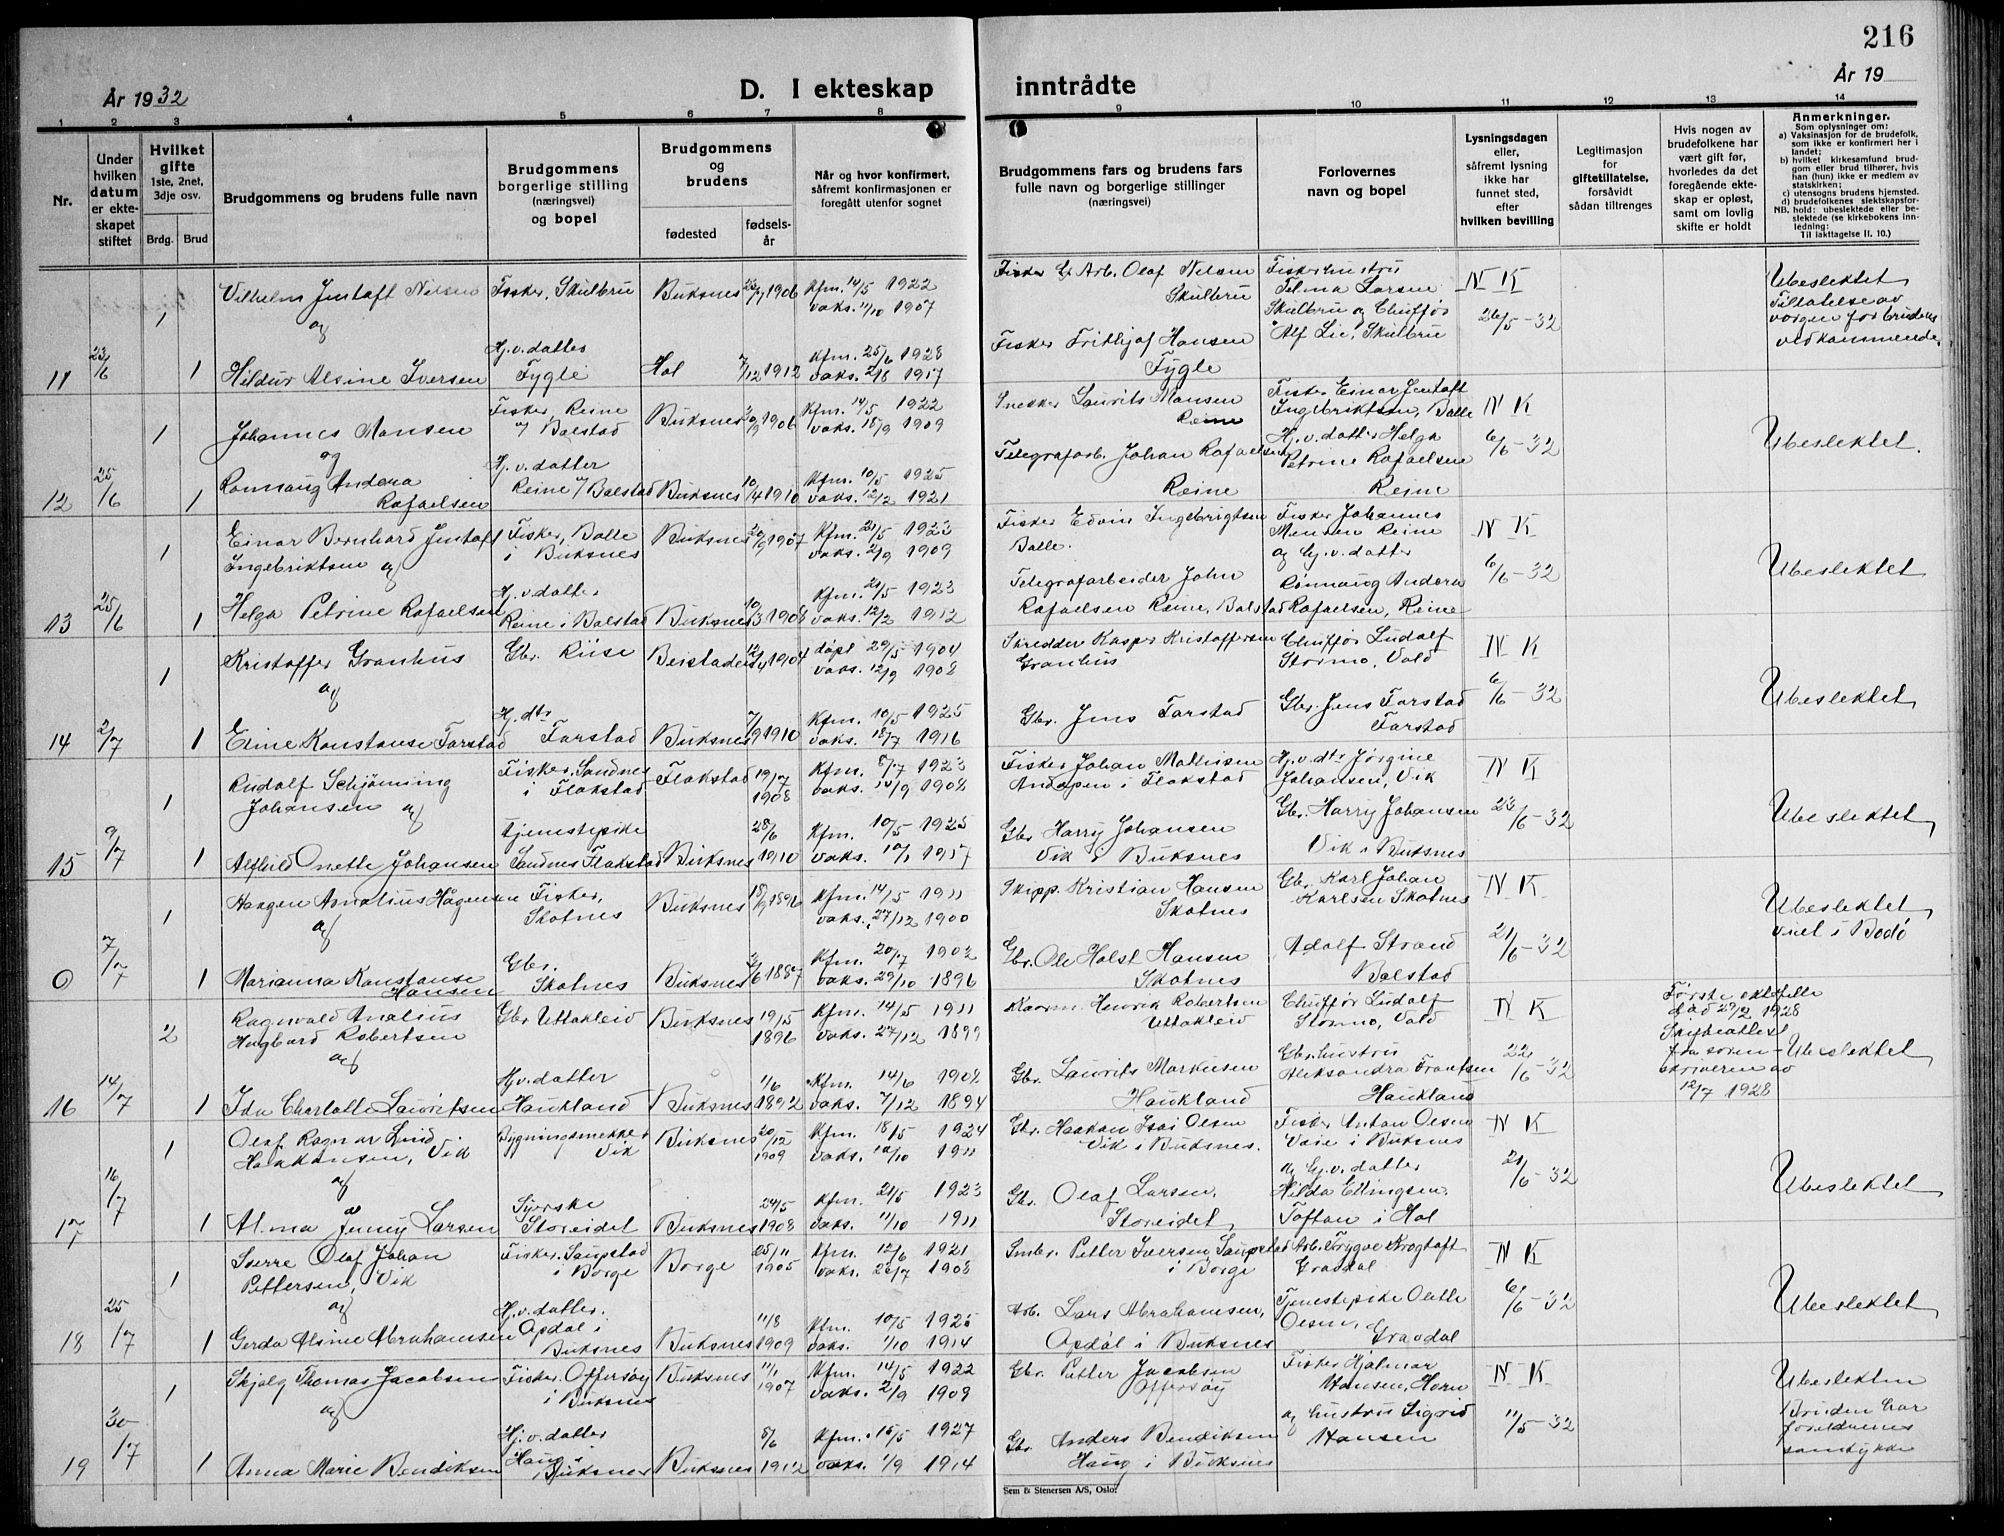 216
År 1932
D. I ekteskap
inntrådte
År 19
1 2 3 4 5 6 7 8 9 10 11 12 13 14
Nr.
Under hvilken datum er ekteskapet stiftet
Hvilket gifte 1ste, 2net, 3dje osv.
Brdg. Brud
Brudgommens og brudens fulle navn
Brudgommens borgerlige stilling (næringsvei) og bopel
Brudgommens og brudens
fødested
fødselsår
Når og hvor konfirmert, såfremt konfirmasjonen er foregått utenfor sognet
Brudgommens fars og brudens fars fulle navn og borgerlige stillinger (næringsvei)
Forlovernes navn og bopel
Lysningsdagen eller, såfremt lysning ikke har funnet sted, efter hvilken bevilling
Legitimasjon for giftetillatelse, forsåvidt sådan tiltrenges
Hvis nogen av brudefolkene har vært gift før, hvorledes da det foregående ekteskap er opløst, samt om lovlig skifte er holdt
Anmerkninger.
Som oplysninger om:
a) Vaksinasjon for de brudefolk, som ikke er konfirmert her i landet;
b) hvilket kirkesamfund brudgom eller brud tilhører, hvis han (hun) ikke er medlem av statskirken;
c) utensogns brudens hjemsted.
d) brudefolkenes slektskapsforhold: ubeslektede eller beslektede (se kirkebokens innledning:
NB.
Til iakttagelse II. 10.)
Vilhelm Jentoft Nilsen Fisker, Skulbru Buksnes 1906 Kfm. 14/5 1922
1 og vaks. 11/10 1907
Fisker Olaf Nilsen Skulbru
Fiskerhustru Telma Larsen Skulbru og Chuffør Alf Lie, Skulbru
N K 26/5-32
Ubeslektet Tillatelse av vergen for brudens vedkommende
11 23/6 1 Hildur Alsine Iversen Hj.v.datter Fygle Hol 7/12 1912 Kfm. 25/6 1928 vaks. 2/8 1917
Fisker Frithjof Hansen Fygle
1 Johannes Monsen og Fisker, Reine Balstad Buksnes 1906 Kfm. 14/5 1922 vaks. 15/9 1909
Snekker Laurits Monsen Reine
Fisker Einar Jentoft Ingebriktsen, Balle
N K 6/6-32
Ubeslektet.
12 25/6 1 Rønnaug Andora Rafaelsen Hj.v.datter Reine Balstad Buksnes 10/4 1910 Kfm. 10/5 1925 vaks. 12/2 1921
Telegrafarb. Johan Rafaelsen Reine
Hj.v.datter Helga Petrine Rafaelsen Reine
1 Einar Bernhard Jentoft Ingebriktsen og Fisker, Balle i Buksnes Buksnes 1907 Kfm. 21/5 1923 vaks. 2/9 1909
Fisker Edvin Ingebrigtsen Balle.
Fisker Johannes Monsen Reine og Hj.v.datter Rønnaug Andora Rafaelsen, Reine
N K 6/6-32
Ubeslektet
13 25/6 1 Helga Petrine Rafaelsen Hj.v.datter Reine i Balstad Buksnes 10/3 1908 Kfm. 21/5 1923 vaks. 12/2 1912
Telegrafarbeider John Rafaelsen Reine, Balstad
1 Kristoffer Granhus og Gbr. Riise Beistaden 12/4 1904 døpt 29/5 1904 vaks. 12/9 1908
Skredder Kasper Kristoffersen Granhus
Chuffør Ludolf Stormo, Vold
N K 6/6-32
Ubeslektet
14 2/7 1 Eline Konstanse Farstad Hj.dtr Farstad Buksnes 7/9 1910 Kfm. 10/5 1925 vaks. 18/7 1916
Gbr. Jens Farstad
Gbr. Jens Farstad Farstad
1 Rudolf Schjønning Johansen og Fisker, Sandnes i Flakstad Flakstad 19/7 1908 Kfm. 8/7 1923 vaks. 10/9 1908
Fisker Johan Mathisen Andopen i Flakstad
Hj.v.dtr Jørgine Johansen, Vik
N K 23/6-32
Ubeslektet
15 9/7 1 Alfhild Onette Johansen tjenestepike Sandnes Flakstad Buksnes 28/6 1910 Kfm. 10/5 1925 vaks. 10/1 1917
Gbr Harry Johansen Vik i Buksnes
Gbr. Harry Johansen Vik i Buksnes
1 Haagen Amalius Hagensen og Fisker, Skotnes Buksnes 18/9 1896 Kfm. 14/5 1911 vaks. 27/12 1900
Skipp. Kristian Hansen Skotnes
Gbr. Karl Johan Karlsen Skotnes
N K 21/6-32
Ubeslektet viet i Bodø
0 7/7 1 Marianna Konstanse Hansen Gbr. Skotnes Buksnes 1887 Kfm. 20/7 1902 vaks. 29/10 1896
Gbr. Ole Holst Hansen Skotnes
Adolf Strand Balstad
2 Ragnvald Analius Hagbard Robertsen og Gbr Uttakleiv Buksnes 19/5 1896 Kfm. 14/5 1911 vaks. 27/12 1899
Henrik Robertsen Uttakleiv
Chuffør Ludolf Stormo, Vold
N K 22/6-32
Første ektefelle død 29/2 1928 Skifteattest fra sorenskriveren av 12/7 1928
Ubeslektet
16 14/7 1 Ida Charlotte Lauritsen Hj.v.datter Haukland Buksnes 1/6 1892 Kfm. 14/6 1908 vaks. 7/12 1894
Gbr. Laurits Markusen Haukland
Gbr.hustru Aleksandra Frantsen Haukland
1 Olaf Ragnar Lind Haakonsen, Vik og Bygningsnekker Vik Buksnes 20/12 1909 Kfm. 18/5 1924 vaks. 10/10 1911
Gbr. Haakon Isai Olsen Vik i Buksnes.
Fisker Anton Olsen Voie i Buksnes og Hj.v.datter Hilda Ellingsen. Toftan i Hol
N K 21/6-32
Ubeslektet
17 16/7 1 Alma Jenny Larsen Syerske Storeidet Buksnes 24/5 1908 Kfm. 21/5 1923 vaks. 11/10-1911
Gbr. Olaf Larsen. Storeidet
1 Sverre Olaf Johan Pettersen, Vik og Fisker, Saupstad i Borge Borge 25/11 1905 Kfm. 12/6 1921 vaks. 26/7 1908
Smbr. Petter Iversen Saupstad i Borge
Arb. Trygve Krogtoft Gravdal
N K 6/6-32
Ubeslektet
18 25/7 1 Gerda Alsine Abrahamsen Hj.v.datter. Opdal i Buksnes Buksnes 11/8 1909 Kfm. 10/5 1925 vaks. 1/10 1914
Arb. Lars Abrahamsen, Opdal i Buksnes
Tjenestepike Olette Olsen, Gravdal
1 Skjolg Thomas Jacobsen og Fisker, Offersøy i Buksnes Buksnes 11/1 1907 Kfm. 14/5 1922 vaks. 2/9 1908
Gbr. Petter Jacobsen Offersøy
Fisker Hjalmar Hansen, Horn og hustru Sigrid Hansen
N K 11/5-32
Ubeslekten Bruden har foreldrenes samtykke
19 30/7 1 Anna Marie Bendiksen Hj.v.datter Haug i Buksnes Buksnes 8/6 1912 Kfm. 15/5 1927 vaks. 1/9 1914
Gbr Anders Bendiksen Haug i Buksnes
Sem & Stenersen A/S, Oslo.